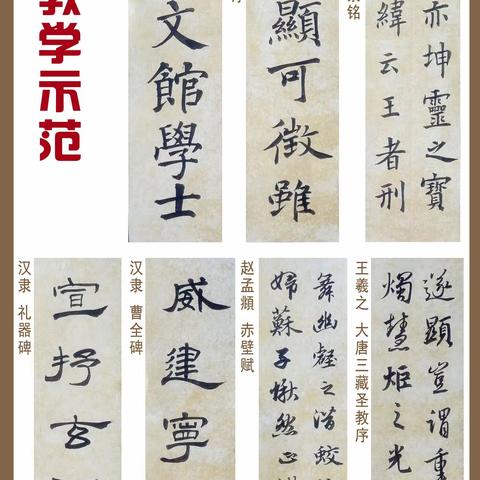 教学示范
文館學士
顯可徵雖
亦坤靈之寶
緯云王者刑
铭
汉隶 礼器碑
宣抒玄
汉隶 曹全碑
威建寧
赵孟頫 赤壁赋
舞幽壑之潜蛟
婦蘇子愀然正
王羲之 大唐三藏圣教序
遂顯豈謂重
燭慧炬之光